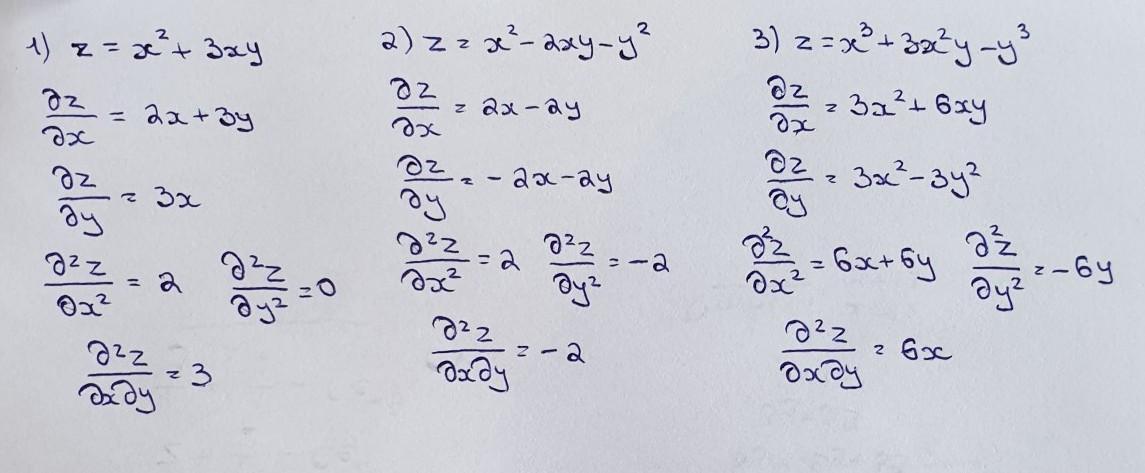 1) z = x² + 3xy
∂z/∂x = 2x + 3y
∂z/∂y = 3x
∂²z/∂x² = 2 ∂²z/∂y² = 0
∂²z/∂x∂y = 3
2) z = x² - 2xy - y²
∂z/∂x = 2x - 2y
∂z/∂y = - 2x - 2y
∂²z/∂x² = 2 ∂²z/∂y² = -2
∂²z/∂x∂y = -2
3) z = x³ + 3x²y - y³
∂z/∂x = 3x² + 6xy
∂z/∂y = 3x² - 3y²
∂²z/∂x² = 6x + 6y ∂²z/∂y² = -6y
∂²z/∂x∂y = 6x